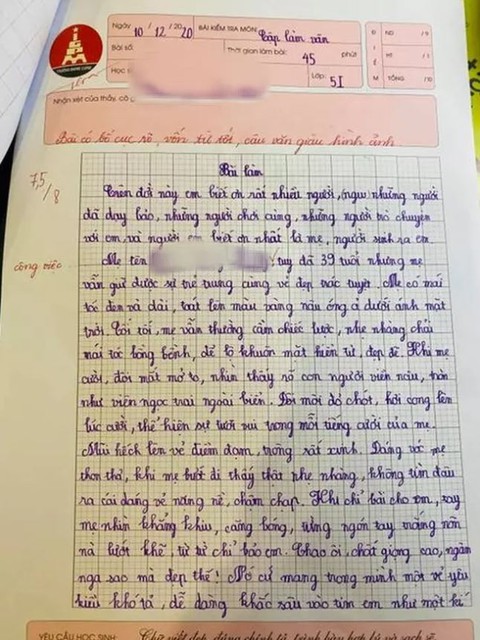 Ngày 10 / 12 / 2020 BÀI KIỂM TRA MÔN: Tập làm văn
Bài số: Thời gian làm bài: 45 phút
Học s Lớp: 5I
Đ I Ể M
ND /
HT /
TỔNG /
Nhận xét của thầy, cô g
Bài có bố cục rõ, vốn từ tốt, câu văn giàu hình ảnh
7,5/8
Bài làm
Trên đời này em biết ơn rất nhiều người, những người
đã dạy bảo, những người chơi cùng, những người trò chuyện
với em và người em biết ơn nhất là mẹ, người sinh ra em.
công việc
Mẹ tên tuy đã 39 tuổi nhưng mẹ
vẫn giữ được sự trẻ trung cùng vẻ đẹp tuyệt. Mẹ có mái
tóc đen và dài, lên màu vàng nâu óng ả dưới ánh mặt
trời. mẹ vẫn thường cầm chiếc lược, nhẹ nhàng chải
mái tóc bồng bềnh, để lộ khuôn mặt hiền từ, đẹp đẽ. Khi mẹ
cười, đôi mắt mở to, nhìn thấy rõ con ngươi viên nâu, tròn
như viên ngọc trai ngoài biển. Đôi môi đỏ chót, hơi cong lên
lúc cười, thể hiện sự tươi vui trong mỗi tiếng cười của mẹ.
Mũi hếch lên vẻ điềm đạm, trông rất xinh. Dáng vóc mẹ
thon thả, khi mẹ bước đi thấy thật nhẹ nhàng, không tìm đâu
ra cái dáng vẻ nặng nề, chậm chạp. Khi chỉ bài cho em, tay
mẹ nhìn khẳng khiu, căng bóng, từng ngón tay trắng nõn
nà lướt khẽ, từ từ chỉ bảo em. Chao ôi, chất giọng cao, ngân
nga sao mà đẹp thế! Nó cứ mang trong mình một vẻ yêu
kiều khó tả, dễ dàng khắc sâu vào tim em như một kí
YÊU CẦU HỌC SINH: Chữ viết đẹp, đúng chính tả, trình bày hợp lý và sạch sẽ.